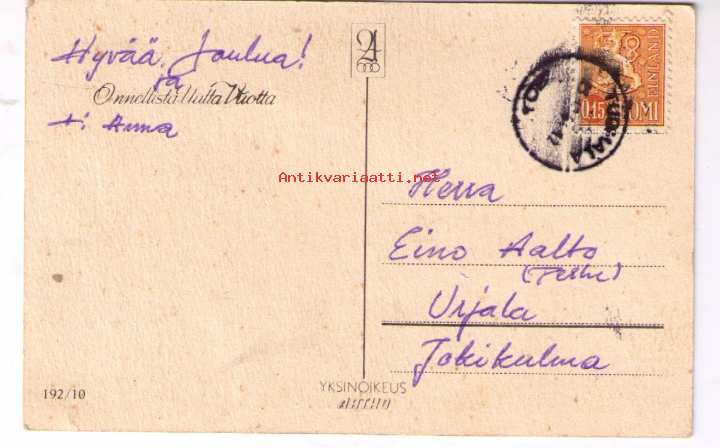 Hyvää Joulua!
ja
Onnellista Uutta Vuotta
t: Anna
192/10
YKSINOIKEUS
FINLAND
0.15 SUOMI
Antikvariaatti.net
Herra
Eino Aalto
Urjala
Jokikulma